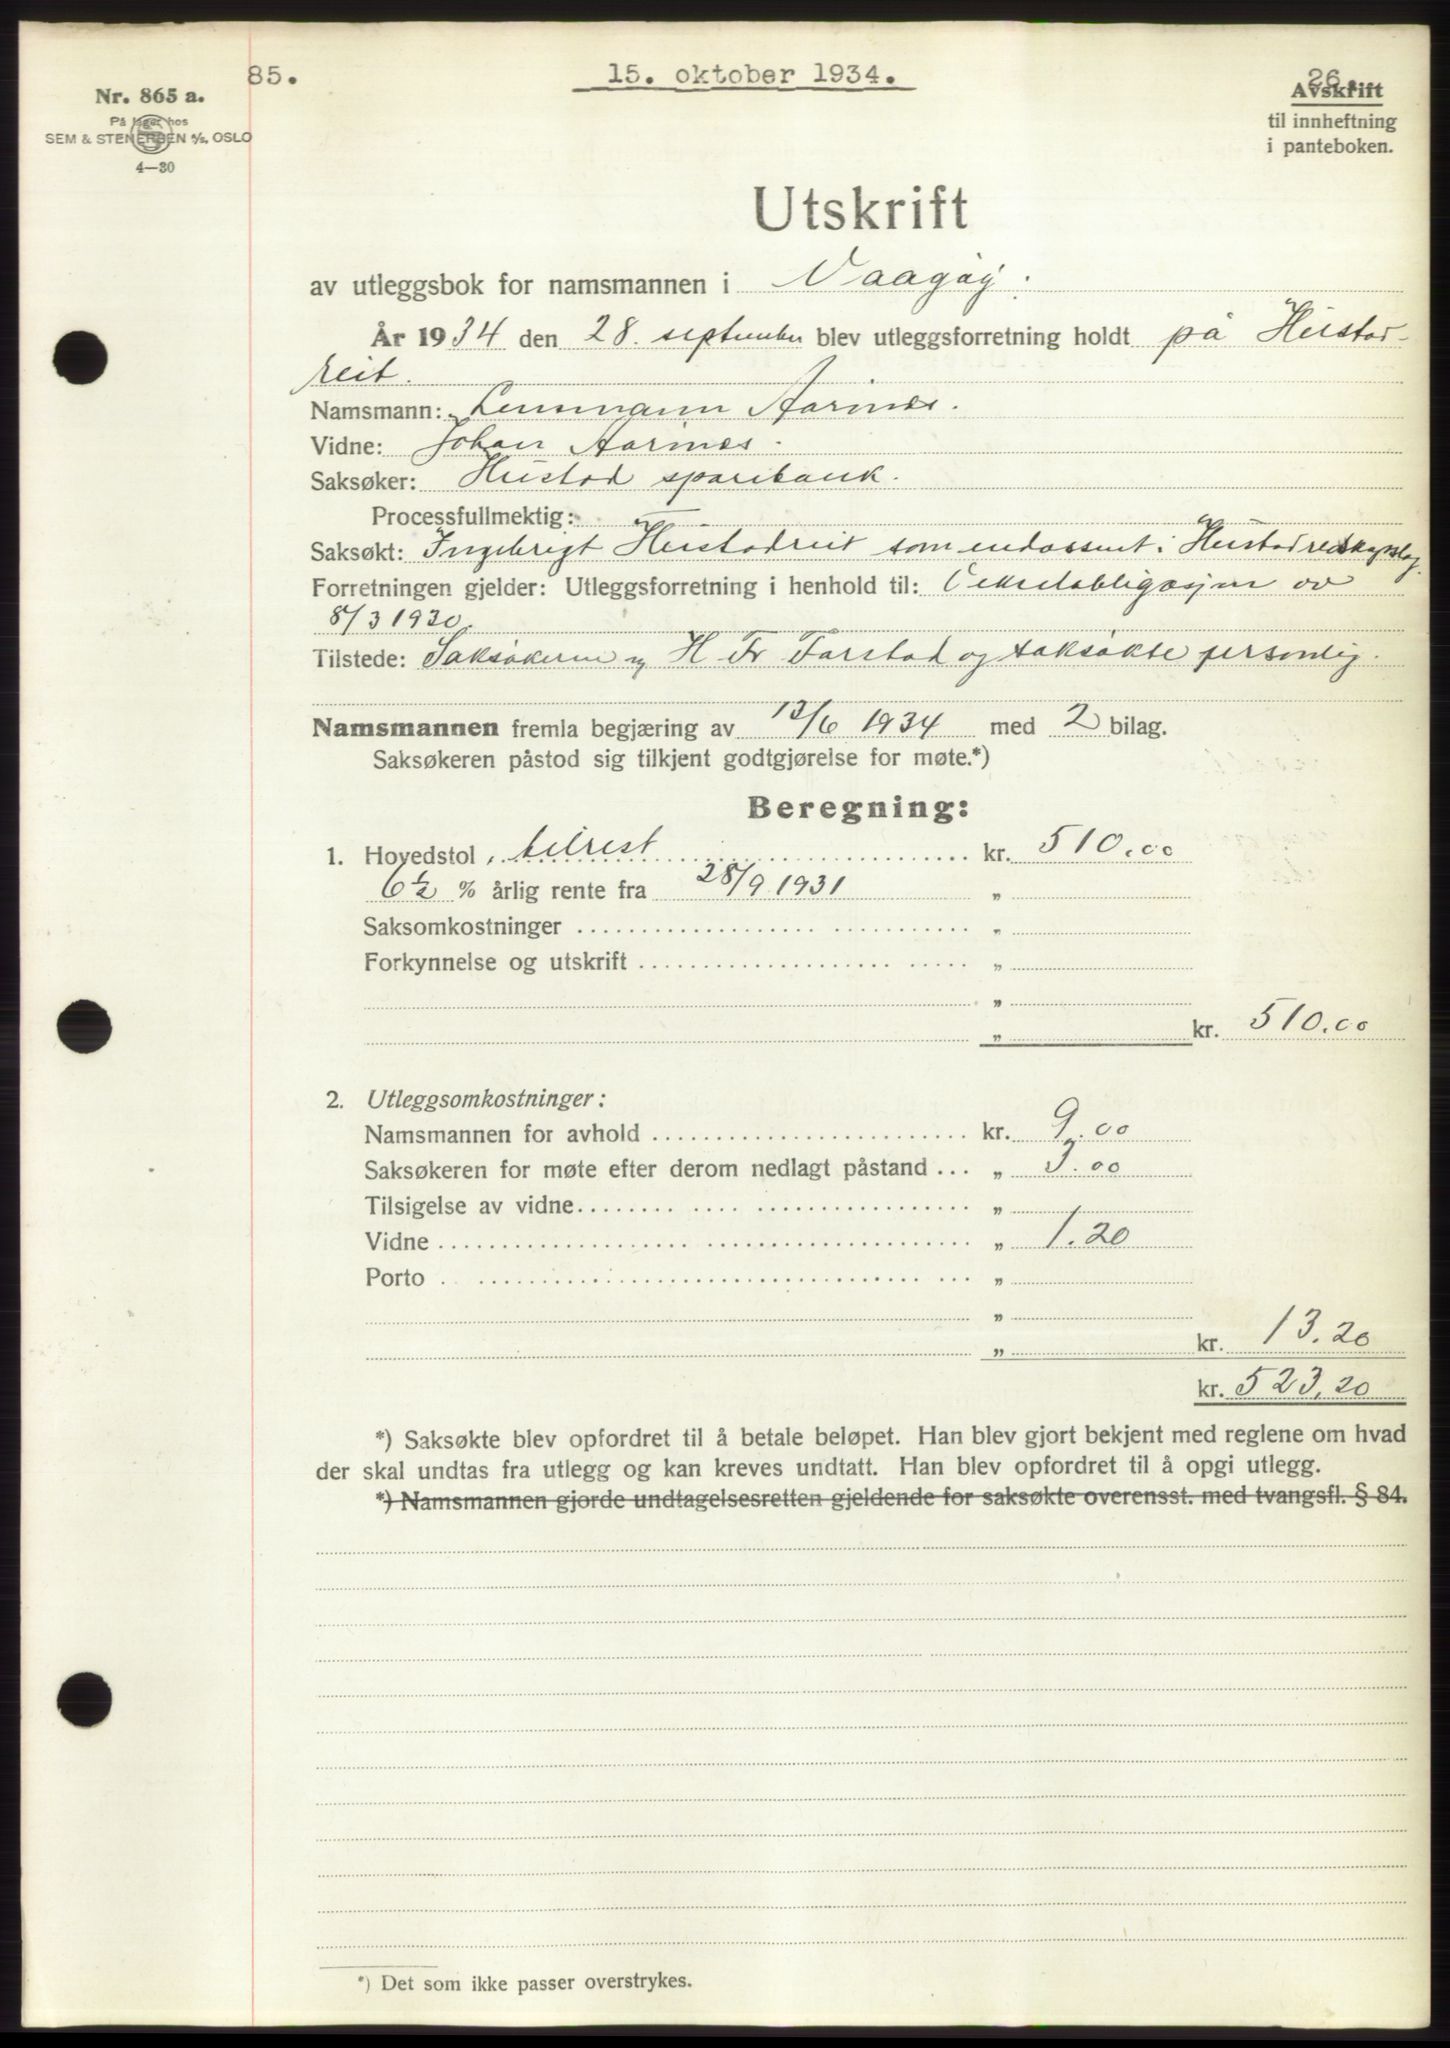 85. 15. oktober 1934. 26.
Nr. 865 a.
På lager hos
SEM & STENERSEN A/S, OSLO
4—30
Avskrift
til innheftning
i panteboken.
Utskrift
av utleggsbok for namsmannen i Vaagøy.
År 1934 den 28. september blev utleggsforretning holdt på Hustad-
reit.
Namsmann: Lensmann Aarines.
Vidne: Johan Aarines.
Saksøker: Hustad sparebank.
Processfullmektig:
Saksøkt: Ingebrigt Hustadreit som endossent i Hustad redskapslag.
Forretningen gjelder: Utleggsforretning i henhold til: Vekselobligasjon av
8/3 1930.
Tilstede: Saksøkeren v/ H Fr Farstad og saksøkte personlig.
Namsmannen fremla begjæring av 13/6 1934 med 2 bilag.
Saksøkeren påstod sig tilkjent godtgjørelse for møte.*)
Beregning:
1. Hovedstol, tilrest kr. 510.00
6½ % årlig rente fra 28/9 1931 „
Saksomkostninger „
Forkynnelse og utskrift „
„
„ kr. 510.00
2. Utleggsomkostninger:
Namsmannen for avhold kr. 9.00
Saksøkeren for møte efter derom nedlagt påstand „ 3.00
Tilsigelse av vidne „
Vidne „ 1.20
Porto „
„
„ kr. 13.20
kr. 523.20
*) Saksøkte blev opfordret til å betale beløpet. Han blev gjort bekjent med reglene om hvad
der skal undtas fra utlegg og kan kreves undtatt. Han blev opfordret til å opgi utlegg.
*) Namsmannen gjorde undtagelsesretten gjeldende for saksøkte overensst. med tvangsfl. § 84.
*) Det som ikke passer overstrykes.